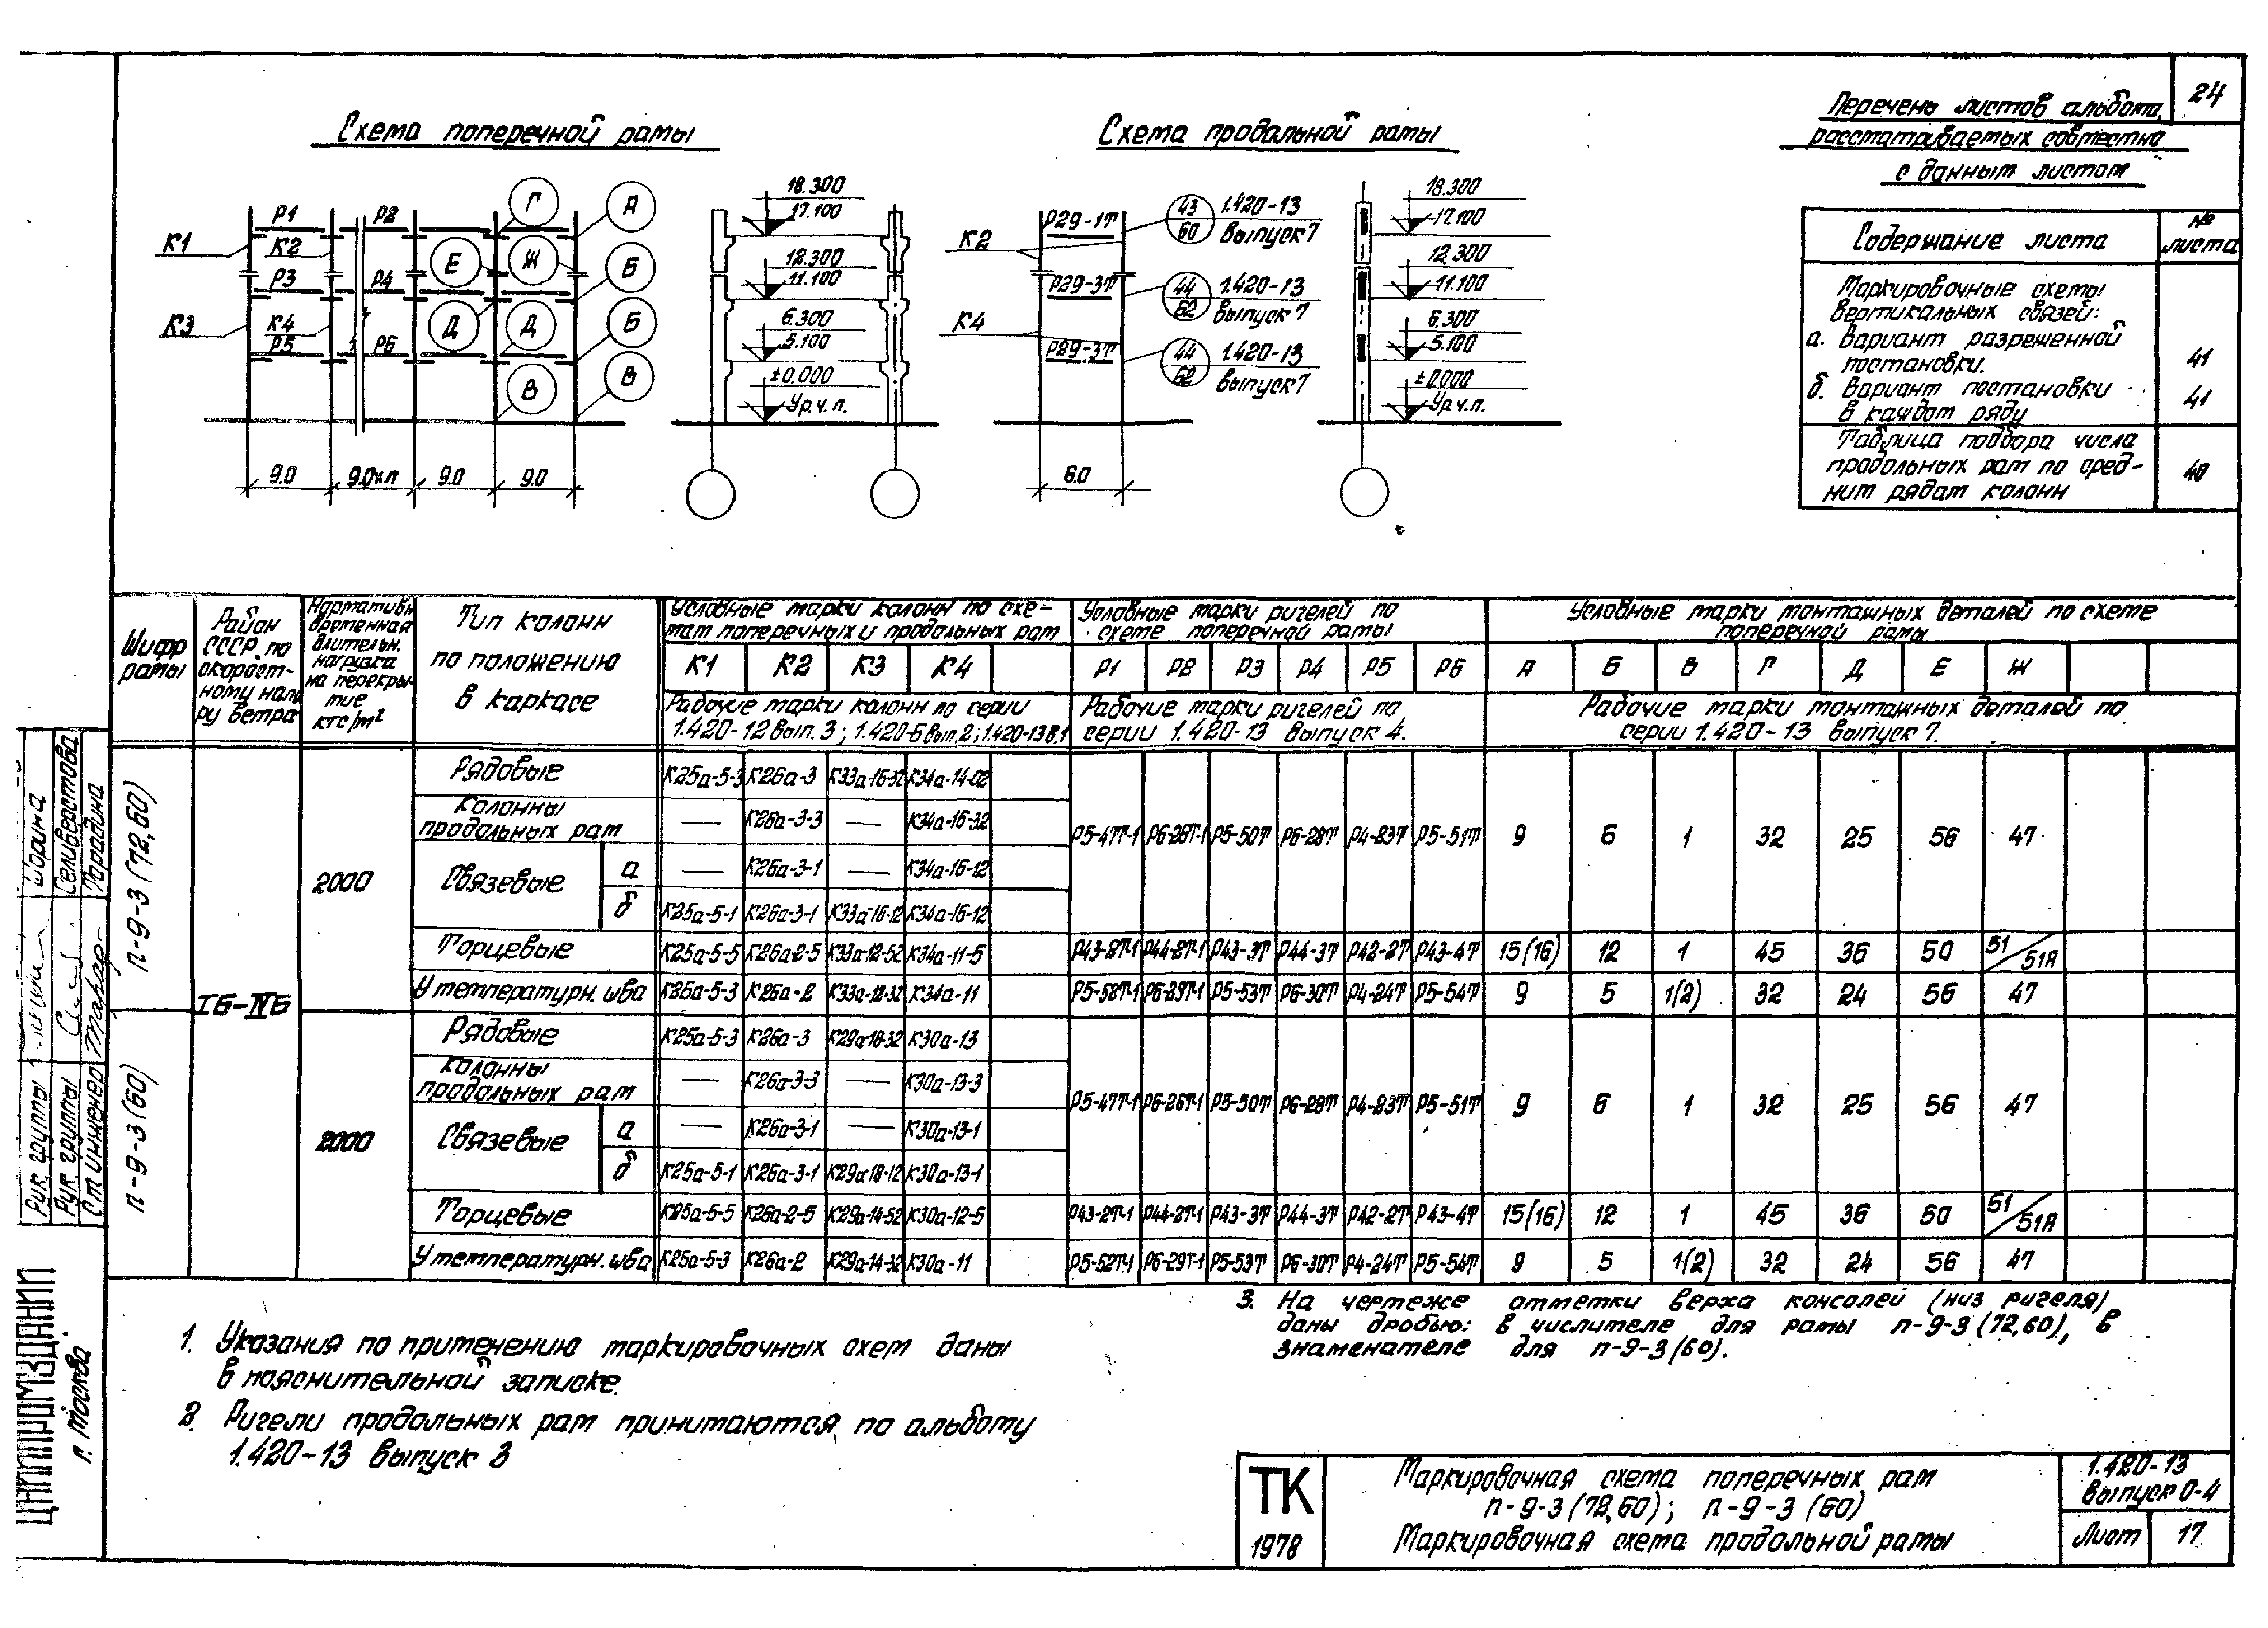 24
Схема поперечной рамы
Схема продольной рамы
Перечень листов альбома,
рассматриваемых совместно
с данным листом
Содержание листа
№ листа
Маркировочные схемы
вертикальных связей:
а. Вариант разреженной
постановки.
41
б. Вариант постановки
в каждом ряду
41
Таблица подбора числа
продольных рам по сред-
ним рядам колонн
40
Р1 Р2 Г А
К1 К2 Е Ж Б
Р3 Р4
К3 К4 Д Д Б
Р5 Р6
В В
9.0 9.0×п 9.0 9.0
18.300
17.100
12.300
11.100
6.300
5.100
±0.000
Ур.ч.п.
К2 Р29-1Т 43/60 1.420-13
выпуск 7
Р29-3Т 44/62 1.420-13
выпуск 7
К4
Р29-3Т 44/62 1.420-13
выпуск 7
6.0
18.300
17.100
12.300
11.100
6.300
5.100
±0.000
Ур.ч.п.
Шифр
рамы
Район
СССР по
скорост-
ному напо
ру ветра
Нормативн.
временная
длительн.
нагрузка
на перекры-
тие
кгс/м²
Тип колонн
по положению
в каркасе
Условные марки колонн по схе-
мам поперечных и продольных рам
К1 К2 К3 К4
Рабочие марки колонн по серии
1.420-12 вып. 3; 1.420-6 вып. 2; 1.420-13 в.1
Условные марки ригелей по
схеме поперечной рамы
Р1 Р2 Р3 Р4 Р5 Р6
Рабочие марки ригелей по
серии 1.420-13 выпуск 4.
Условные марки монтажных деталей по схеме
поперечной рамы
А Б В Г Д Е Ж
Рабочие марки монтажных деталей по
серии 1.420-13 выпуск 7.
п-9-3 (72,60)
IБ-IVБ
2000
Рядовые К25а-5-3 К26а-3 К33а-16-32 К34а-14-02
Колонны
продольных рам — К26а-3-3 — К34а-16-32
Р5-47Т-1 Р6-26Т-1 Р5-50Т Р6-28Т Р4-23Т Р5-51Т 9 6 1 32 25 56 47
Связевые а — К26а-3-1 — К34а-16-12
б К25а-5-1 К26а-3-1 К33а-16-12 К34а-16-12
Торцевые К25а-5-5 К26а-2-5 К33а-12-52 К34а-11-5 Р43-2Т-1 Р44-2Т-1 Р43-3Т Р44-3Т Р42-2Т Р43-4Т 15(16) 12 1 45 36 50 51/51А
У температурн. шва К25а-5-3 К26а-2 К33а-12-32 К34а-11 Р5-52Т-1 Р6-29Т-1 Р5-53Т Р6-30Т Р4-24Т Р5-54Т 9 5 1(2) 32 24 56 47
п-9-3 (60)
2000
Рядовые К25а-5-3 К26а-3 К29а-18-32 К30а-13
Колонны
продольных рам — К26а-3-3 — К30а-13-3
Р5-47Т-1 Р6-26Т-1 Р5-50Т Р6-28Т Р4-23Т Р5-51Т 9 6 1 32 25 56 47
Связевые а — К26а-3-1 — К30а-13-1
б К25а-5-1 К26а-3-1 К29а-18-12 К30а-13-1
Торцевые К25а-5-5 К26а-2-5 К29а-14-52 К30а-12-5 Р43-2Т-1 Р44-2Т-1 Р43-3Т Р44-3Т Р42-2Т Р43-4Т 15(16) 12 1 45 36 50 51/51А
У температурн. шва К25а-5-3 К26а-2 К29а-14-32 К30а-11 Р5-52Т-1 Р6-29Т-1 Р5-53Т Р6-30Т Р4-24Т Р5-54Т 9 5 1(2) 32 24 56 47
1. Указания по применению маркировочных схем даны
в пояснительной записке.
2. Ригели продольных рам принимаются по альбому
1.420-13 выпуск 3
3. На чертеже отметки верха консолей (низ ригеля)
даны дробью: в числителе для рамы п-9-3 (72,60), в
знаменателе для п-9-3 (60).
ТК
1978
Маркировочная схема поперечных рам
п-9-3 (72,60); п-9-3 (60)
Маркировочная схема продольной рамы
1.420-13
Выпуск 0-4
Лист 17
Рук. группы
Рук. группы Селиверстова
Ст. инженер Тарадина
ЦНИИПРОМЗДАНИЙ
г. Москва